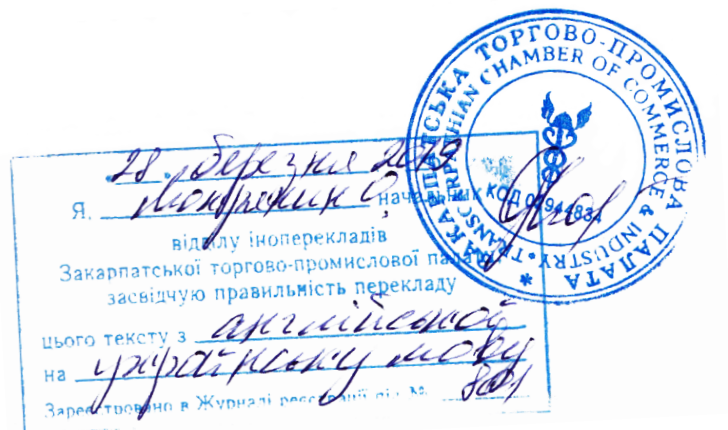 ЗАКАРПАТСЬКА ТОРГОВО-ПРОМИСЛОВА ПАЛАТА
TRANSCARPATHIAN CHAMBER OF COMMERCE & INDUSTRY
28 березня 2019
Я, начальник
КОД
відділу іноперекладів
Закарпатської торгово-промислової палати
засвідчую правильність перекладу
цього тексту з англійської
на українську мову
Зареєстровано в Журналі реєстрації під № 801